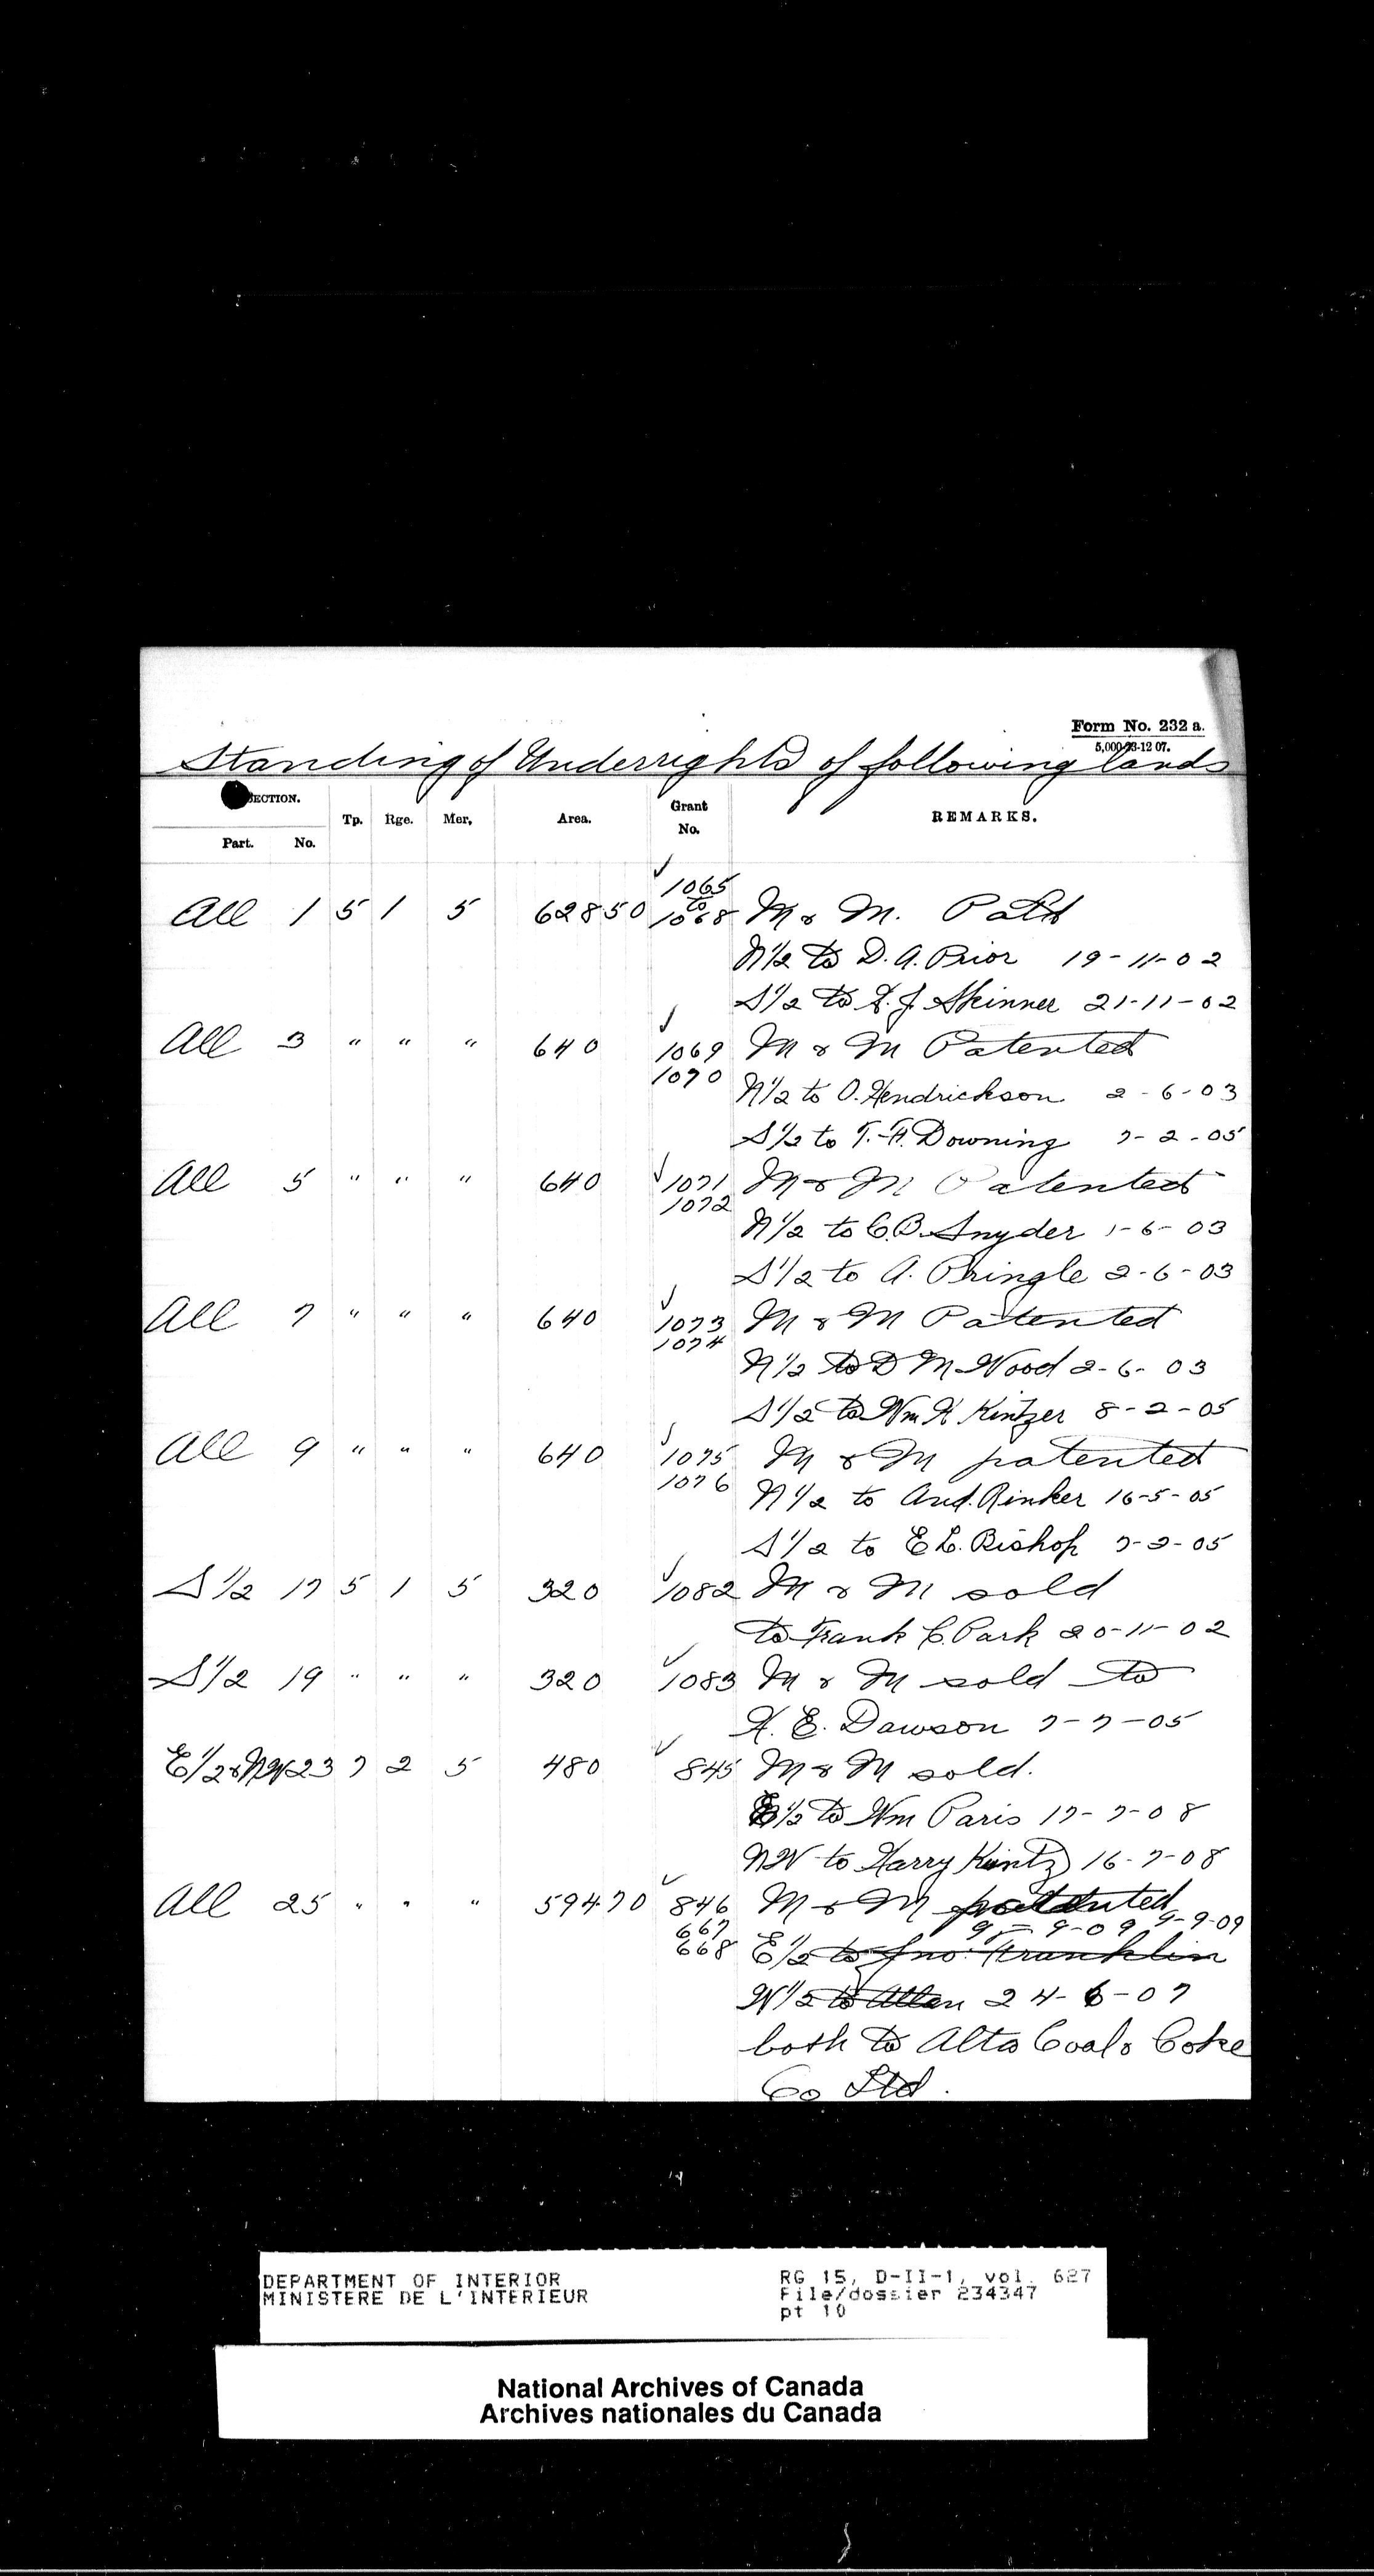 Form No. 232 a.
5,000-23-12 07.
Standing of Underrights of following lands
SECTION. Tp. Rge. Mer. Area. Grant No. REMARKS.
Part. No.
All 1 5 1 5 62850 1065 to 1068 M & M. Patd
N1/2 to D. A. Prior 19-11-02
S1/2 to J. Skinner 21-11-02
All 3 " " " 640 1069 M & M Patented
1070 N1/2 to O. Hendrickson 2-6-03
S1/2 to T. F. Downing 7-2-05
All 5 " " " 640 1071 M & M Patented
1072
N1/2 to C. B. Snyder 1-6-03
S1/2 to A. Pringle 2-6-03
All 7 " " " 640 1073 M & M Patented
1074
N1/2 to D M Wood 2-6-03
S1/2 to Wm H Kintzer 8-2-05
All 9 " " " 640 1075 M & M patented
1076 N1/2 to And. Rinker 16-5-05
S1/2 to E L. Bishop 7-2-05
S1/2 17 5 1 5 320 1082 M & M sold
to Frank C. Park 20-11-02
S1/2 19 " " " 320 1083 M & M sold to
H. E. Dawson 7-7-05
E1/2 & NW 23 7 2 5 480 845 M & M sold.
E1/2 to Wm Paris 17-7-08
NW to Harry Kintz 16-7-08
All 25 " " " 59470 846 M & M patented
667 9-9-09 9-9-09
668 E1/2 to Jno. Franklin
W1/2 to Allen 24-6-07
both to Alta Coal & Coke
Co Ltd.
DEPARTMENT OF INTERIOR RG 15, D-II-1, vol. 627
MINISTERE DE L'INTERIEUR File/dossier 234347
pt 10
National Archives of Canada
Archives nationales du Canada